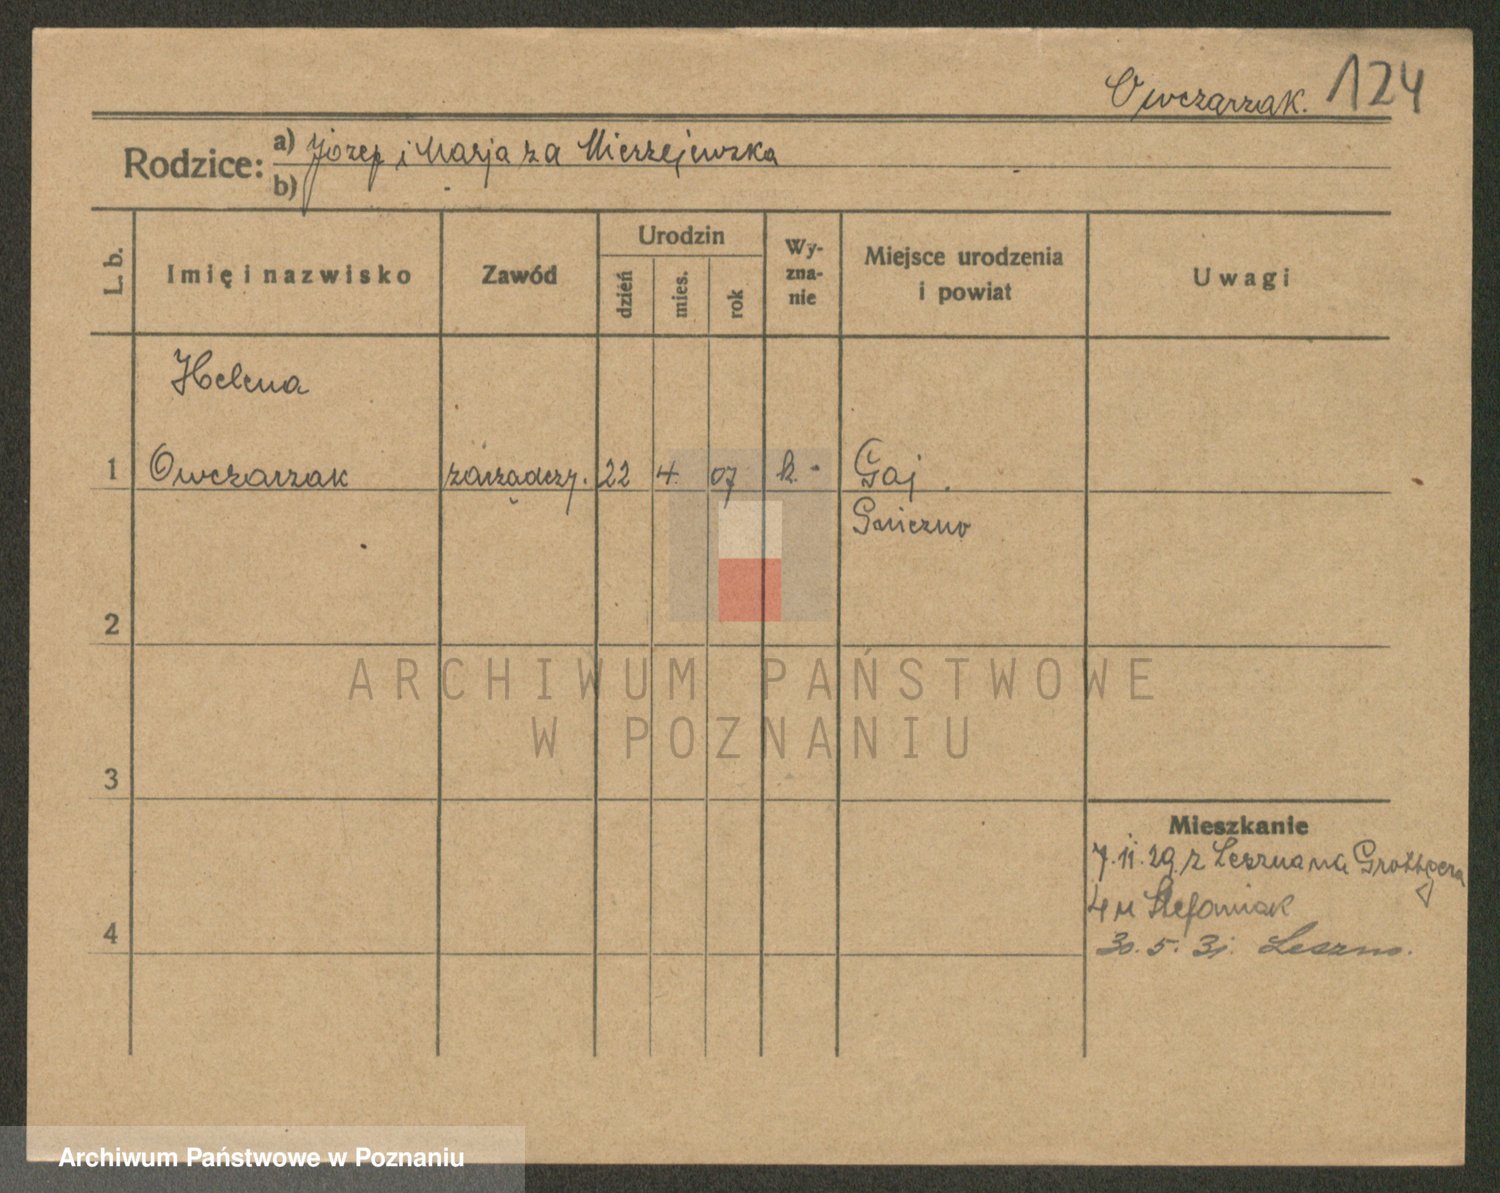 Owczarzak. 124
Rodzice: a) Józef i Marja za Mierzejewska
b)
L. b.
Imię i nazwisko
Zawód
Urodzin
dzień
mies.
rok
Wy-
zna-
nie
Miejsce urodzenia
i powiat
Uwagi
Helena
1 Owczarzak zarządczy. 22 4. 07 k. Gaj
Gniezno
2
3
4
Mieszkanie
7.11.29 z Leszna na
4 u Stefaniak
30.5.31. Leszno.
ARCHIWUM PAŃSTWOWE
W POZNANIU
Archiwum Państwowe w Poznaniu